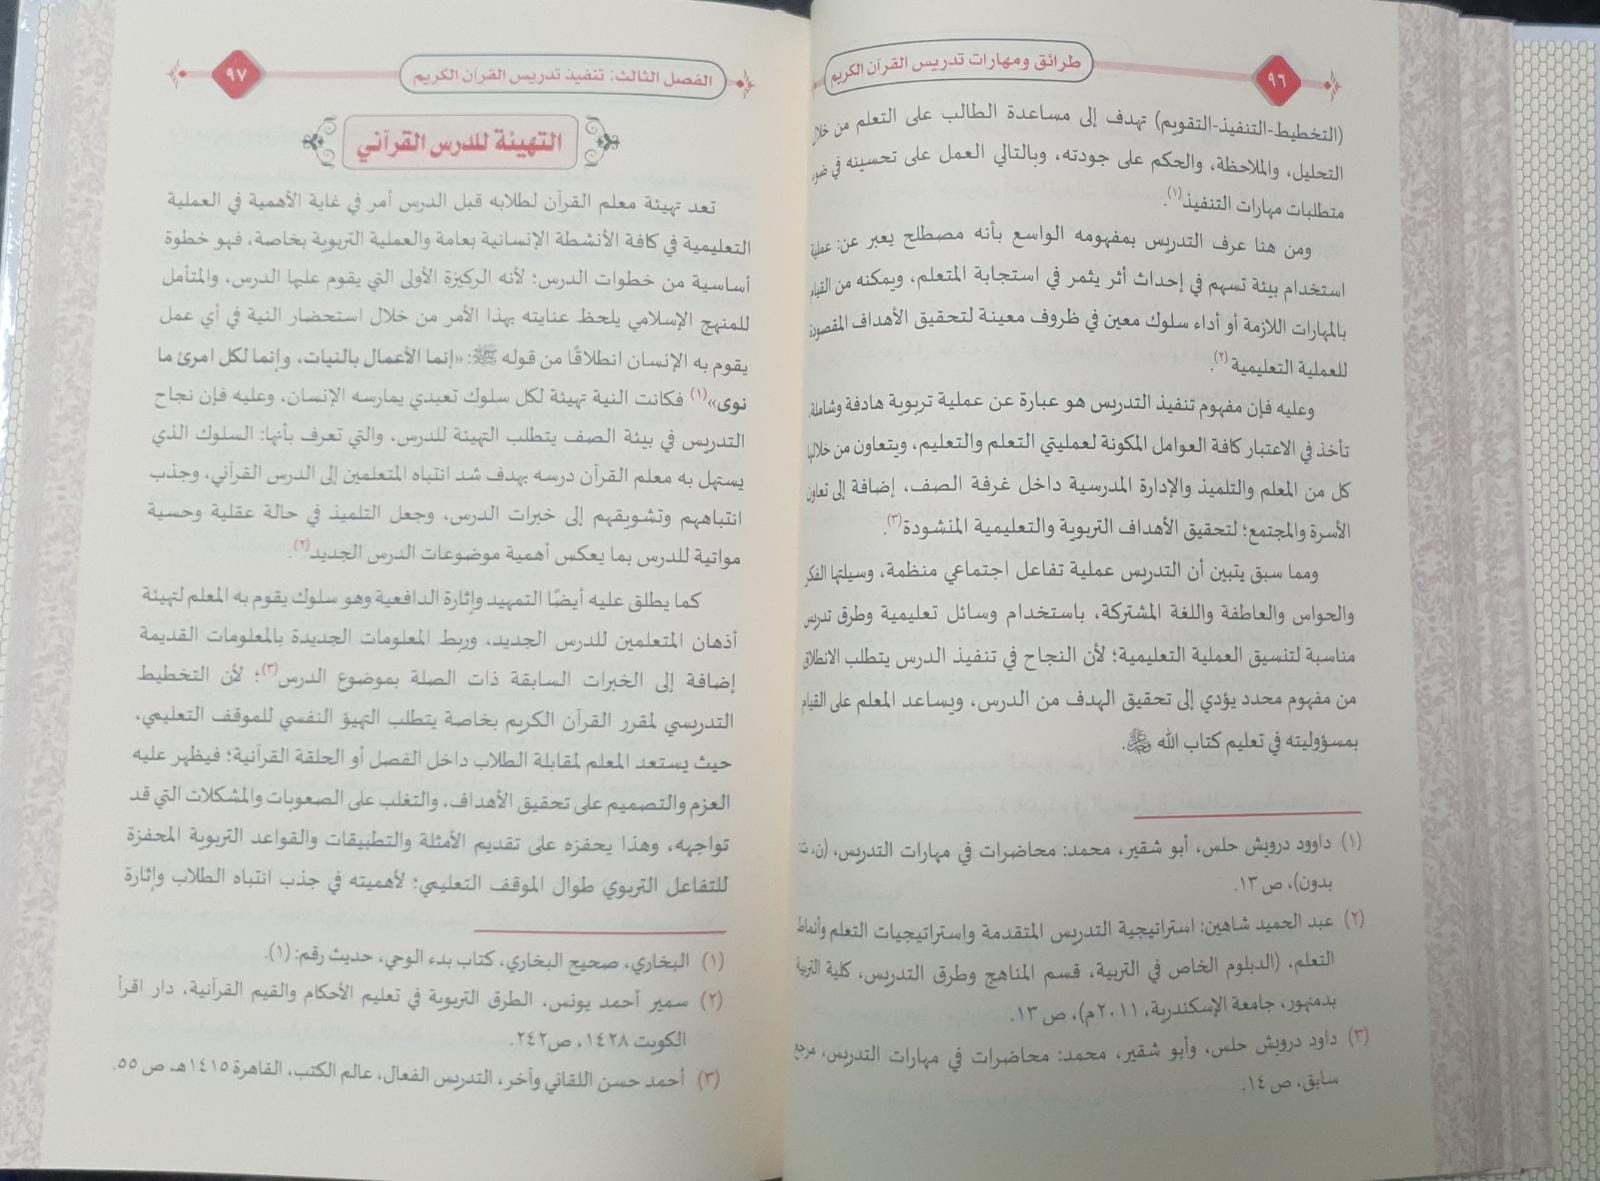 طرائق ومهارات تدريس القرآن الكريم
٩٦
(التخطيط-التنفيذ-التقويم) تهدف إلى مساعدة الطالب على التعلم من خلال
التحليل، والملاحظة، والحكم على جودته، وبالتالي العمل على تحسينه في
متطلبات مهارات التنفيذ(١).
ومن هنا عرف التدريس بمفهومه الواسع بأنه مصطلح يعبر عن: عملية
استخدام بيئة تسهم في إحداث أثر يثمر في استجابة المتعلم، ويمكنه من القيام
بالمهارات اللازمة أو أداء سلوك معين في ظروف معينة لتحقيق الأهداف المقصودة
للعملية التعليمية(٢).
وعليه فإن مفهوم تنفيذ التدريس هو عبارة عن عملية تربوية هادفة وشاملة،
تأخذ في الاعتبار كافة العوامل المكونة لعمليتي التعلم والتعليم، ويتعاون من خلالها
كل من المعلم والتلميذ والإدارة المدرسية داخل غرفة الصف، إضافة إلى تعاون
الأسرة والمجتمع؛ لتحقيق الأهداف التربوية والتعليمية المنشودة(٣).
ومما سبق يتبين أن التدريس عملية تفاعل اجتماعي منظمة، وسيلتها الفكر
والحواس والعاطفة واللغة المشتركة، باستخدام وسائل تعليمية وطرق تدريس
مناسبة لتنسيق العملية التعليمية؛ لأن النجاح في تنفيذ الدرس يتطلب الانطلاق
من مفهوم محدد يؤدي إلى تحقيق الهدف من الدرس، ويساعد المعلم على القيام
بمسؤوليته في تعليم كتاب الله.
(١) داوود درويش حلس، أبو شقير، محمد: محاضرات في مهارات التدريس، (ن،
بدون)، ص ١٣.
(٢) عبد الحميد شاهين: استراتيجية التدريس المتقدمة واستراتيجيات التعلم وأنماط
التعلم، (الدبلوم الخاص في التربية، قسم المناهج وطرق التدريس، كلية التربية
بدمنهور، جامعة الإسكندرية، ٢٠١١م)، ص ١٣.
(٣) داود درويش حلس، وأبو شقير، محمد: محاضرات في مهارات التدريس، مرجع
سابق، ص ١٤.
الفصل الثالث: تنفيذ تدريس القرآن الكريم
٩٧
التهيئة للدرس القرآني
تعد تهيئة معلم القرآن لطلابه قبل الدرس أمر في غاية الأهمية في العملية
التعليمية في كافة الأنشطة الإنسانية بعامة والعملية التربوية بخاصة، فهو خطوة
أساسية من خطوات الدرس؛ لأنه الركيزة الأولى التي يقوم عليها الدرس، والمتأمل
للمنهج الإسلامي يلحظ عنايته بهذا الأمر من خلال استحضار النية في أي عمل
يقوم به الإنسان انطلاقًا من قوله ﷺ: «إنما الأعمال بالنيات، وإنما لكل امرئ ما
نوى»(١) فكانت النية تهيئة لكل سلوك تعبدي يمارسه الإنسان، وعليه فإن نجاح
التدريس في بيئة الصف يتطلب التهيئة للدرس، والتي تعرف بأنها: السلوك الذي
يستهل به معلم القرآن درسه بهدف شد انتباه المتعلمين إلى الدرس القرآني، وجذب
انتباههم وتشويقهم إلى خبرات الدرس، وجعل التلميذ في حالة عقلية وحسية
مواتية للدرس بما يعكس أهمية موضوعات الدرس الجديد(٢).
كما يطلق عليه أيضًا التمهيد وإثارة الدافعية وهو سلوك يقوم به المعلم لتهيئة
أذهان المتعلمين للدرس الجديد، وربط المعلومات الجديدة بالمعلومات القديمة
إضافة إلى الخبرات السابقة ذات الصلة بموضوع الدرس(٣)؛ لأن التخطيط
التدريسي لمقرر القرآن الكريم بخاصة يتطلب التهيؤ النفسي للموقف التعليمي،
حيث يستعد المعلم لمقابلة الطلاب داخل الفصل أو الحلقة القرآنية؛ فيظهر عليه
العزم والتصميم على تحقيق الأهداف، والتغلب على الصعوبات والمشكلات التي قد
تواجهه، وهذا يحفزه على تقديم الأمثلة والتطبيقات والقواعد التربوية المحفزة
للتفاعل التربوي طوال الموقف التعليمي؛ لأهميته في جذب انتباه الطلاب وإثارة
(١) البخاري، صحيح البخاري، كتاب بدء الوحي، حديث رقم: (١).
(٢) سمير أحمد يونس، الطرق التربوية في تعليم الأحكام والقيم القرآنية، دار اقرأ
الكويت ١٤٢٨، ص٢٤٢.
(٣) أحمد حسن اللقاني وآخر، التدريس الفعال، عالم الكتب، القاهرة ١٤١٥هـ، ص ٥٥.